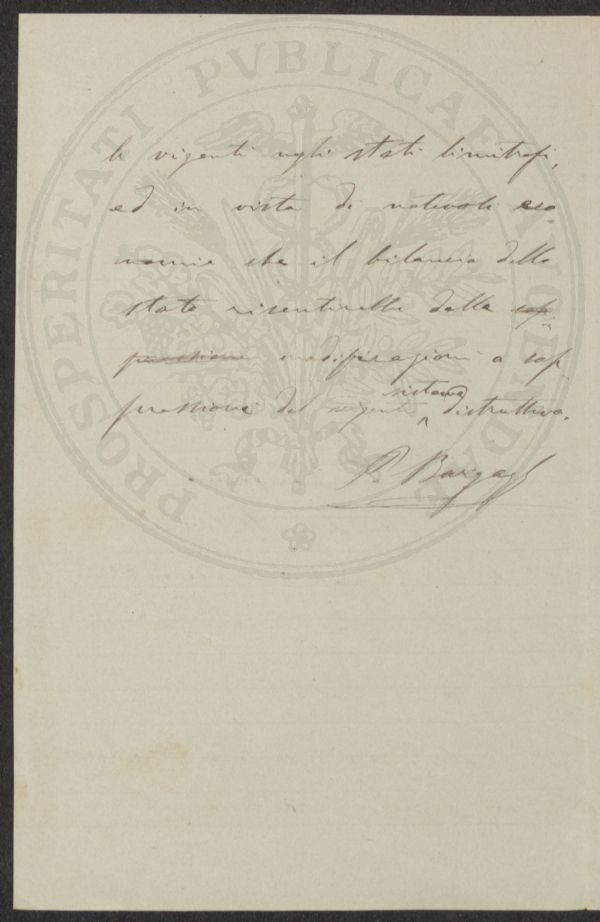 le vigenti negli stati limitrofi,
ed in vista di notevoli eco-
nomie che il bilancio dello
stato risentirebbe dalla sop-
pressione modificazioni o sop-
pressioni del vigente sistema distruttivo.
P. Bargagli
PROSPERITATI PVBLICAE AVGENDAE